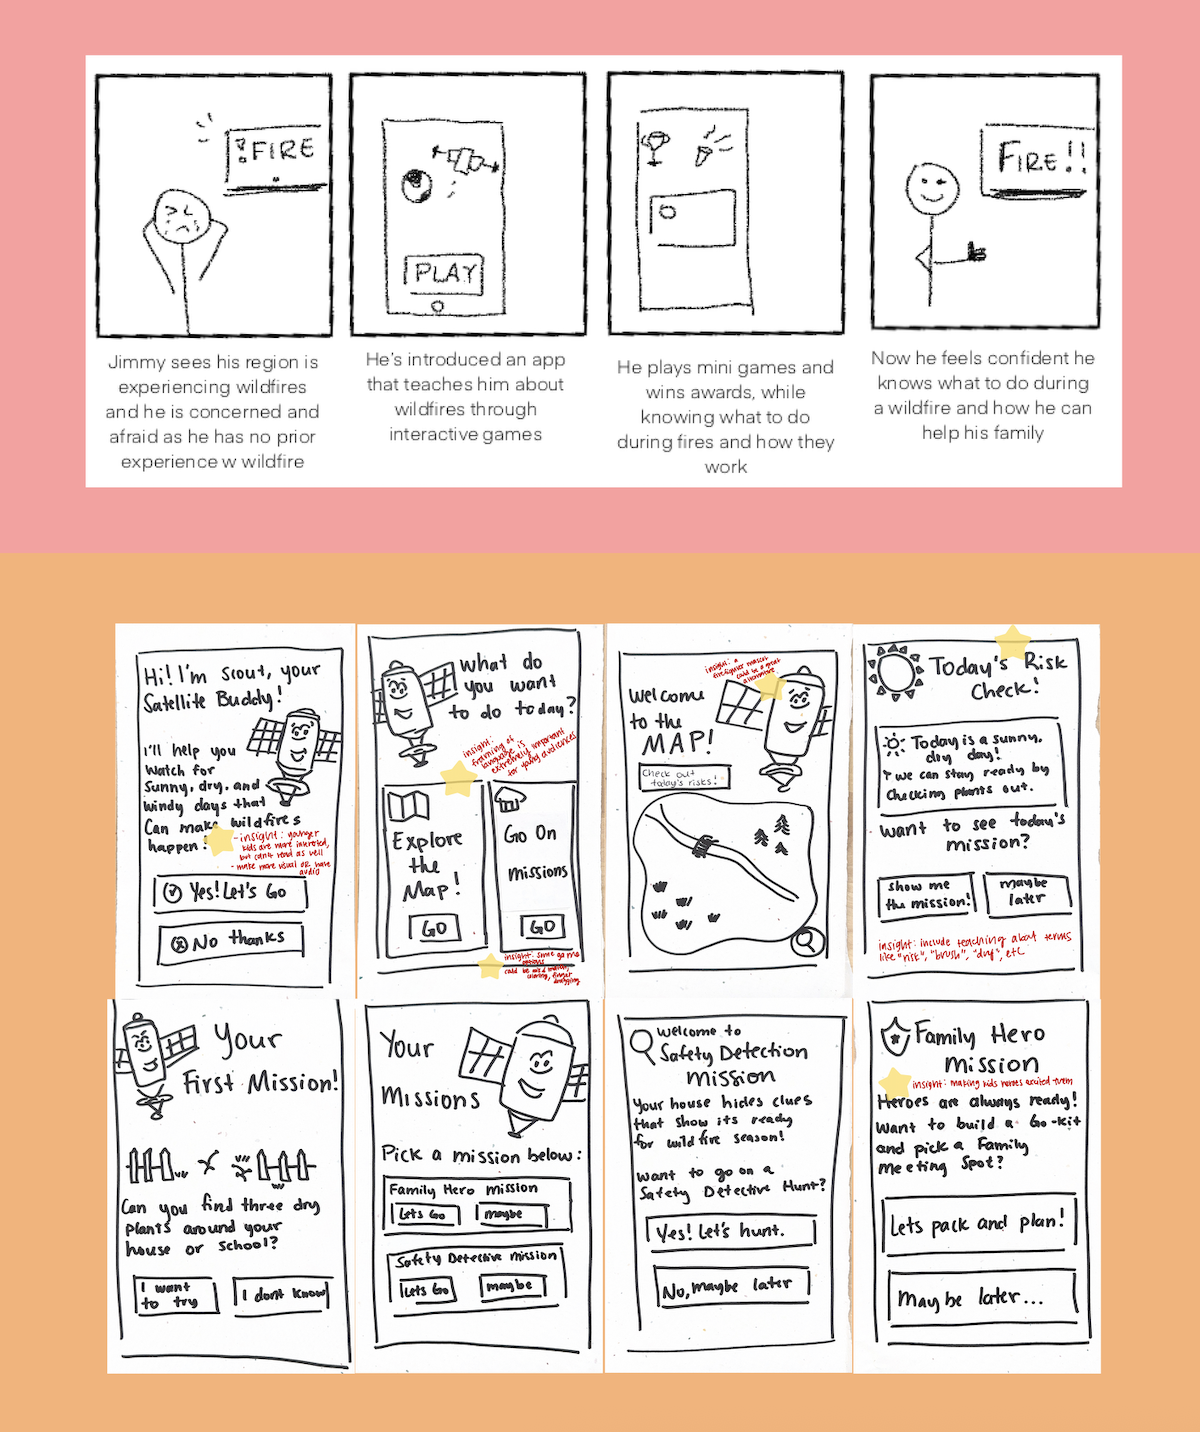 ? FIRE
PLAY
FIRE!!
Jimmy sees his region is
experiencing wildfires
and he is concerned and
afraid as he has no prior
experience w wildfire
He's introduced an app
that teaches him about
wildfires through
interactive games
He plays mini games and
wins awards, while
knowing what to do
during fires and how they
work
Now he feels confident he
knows what to do during
a wildfire and how he can
help his family
Hi! I'm Scout, your
Satellite Buddy!
I'll help you
watch for
sunny, dry, and
windy days that
can make wildfires
happen!
- insight: younger
kids are more interested,
but can't read as well
- make more visual OR have
audio
Yes! Let's Go
No thanks
What do
you want
to do today?
insight:
framing of
language is
extremely important
for young audiences
Explore
the
Map!
GO
Go On
missions
GO
insight: some game
options
could be
coloring, finger
dragging
insight: a
firefighter mascot
could be a great
alternative
Welcome
to the
MAP!
Check out
today's risks!
Today's Risk
Check!
Today is a sunny,
dry day!
we can stay ready by
checking plants out.
want to see today's
mission?
show me
the mission!
maybe
later
insight: include teaching about terms
like "risk", "brush", "dry", etc
Your
First Mission!
Can you find three dry
plants around your
house or school?
I want
to try
I dont know
Your
Missions
Pick a mission below:
Family Hero mission
Lets Go
maybe
Safety Detective mission
Lets Go
maybe
Welcome to
Safety Detection
mission
Your house hides clues
that show its ready
for wildfire season!
want to go on a
Safety Detective Hunt?
Yes! Let's hunt.
No, maybe later
Family Hero
mission
insight: making kids heroes excited them
Heroes are always ready!
Want to build a Go-kit
and pick a Family
meeting spot?
Lets pack and plan!
Maybe later...